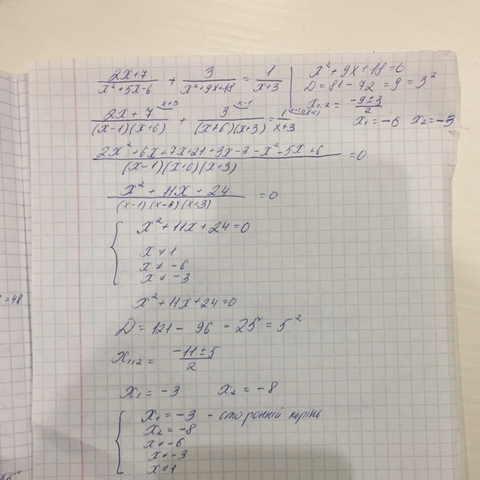 (2x+7)/(x²+5x-6) + 3/(x²+9x+18) = 1/(x+3)
x²+9x+18=0
D=81-72=9=3²
x₁,₂ = (-9±3)/2
x₁=-6 x₂=-3
(2x+7)/((x-1)(x+6)) + 3/((x+6)(x+3)) = 1/(x+3)
(2x²+6x+7x+21+3x-3-x²-5x+6)/((x-1)(x+6)(x+3)) =0
(x²+11x+24)/((x-1)(x+6)(x+3)) =0
x²+11x+24=0
x≠1
x≠-6
x≠-3
x²+11x+24=0
D=121-96-25=5²
x₁,₂= (-11±5)/2
x₁=-3 x₂=-8
x₁=-3 - сторонній корінь
x₂=-8
x≠-6
x≠-3
x≠1